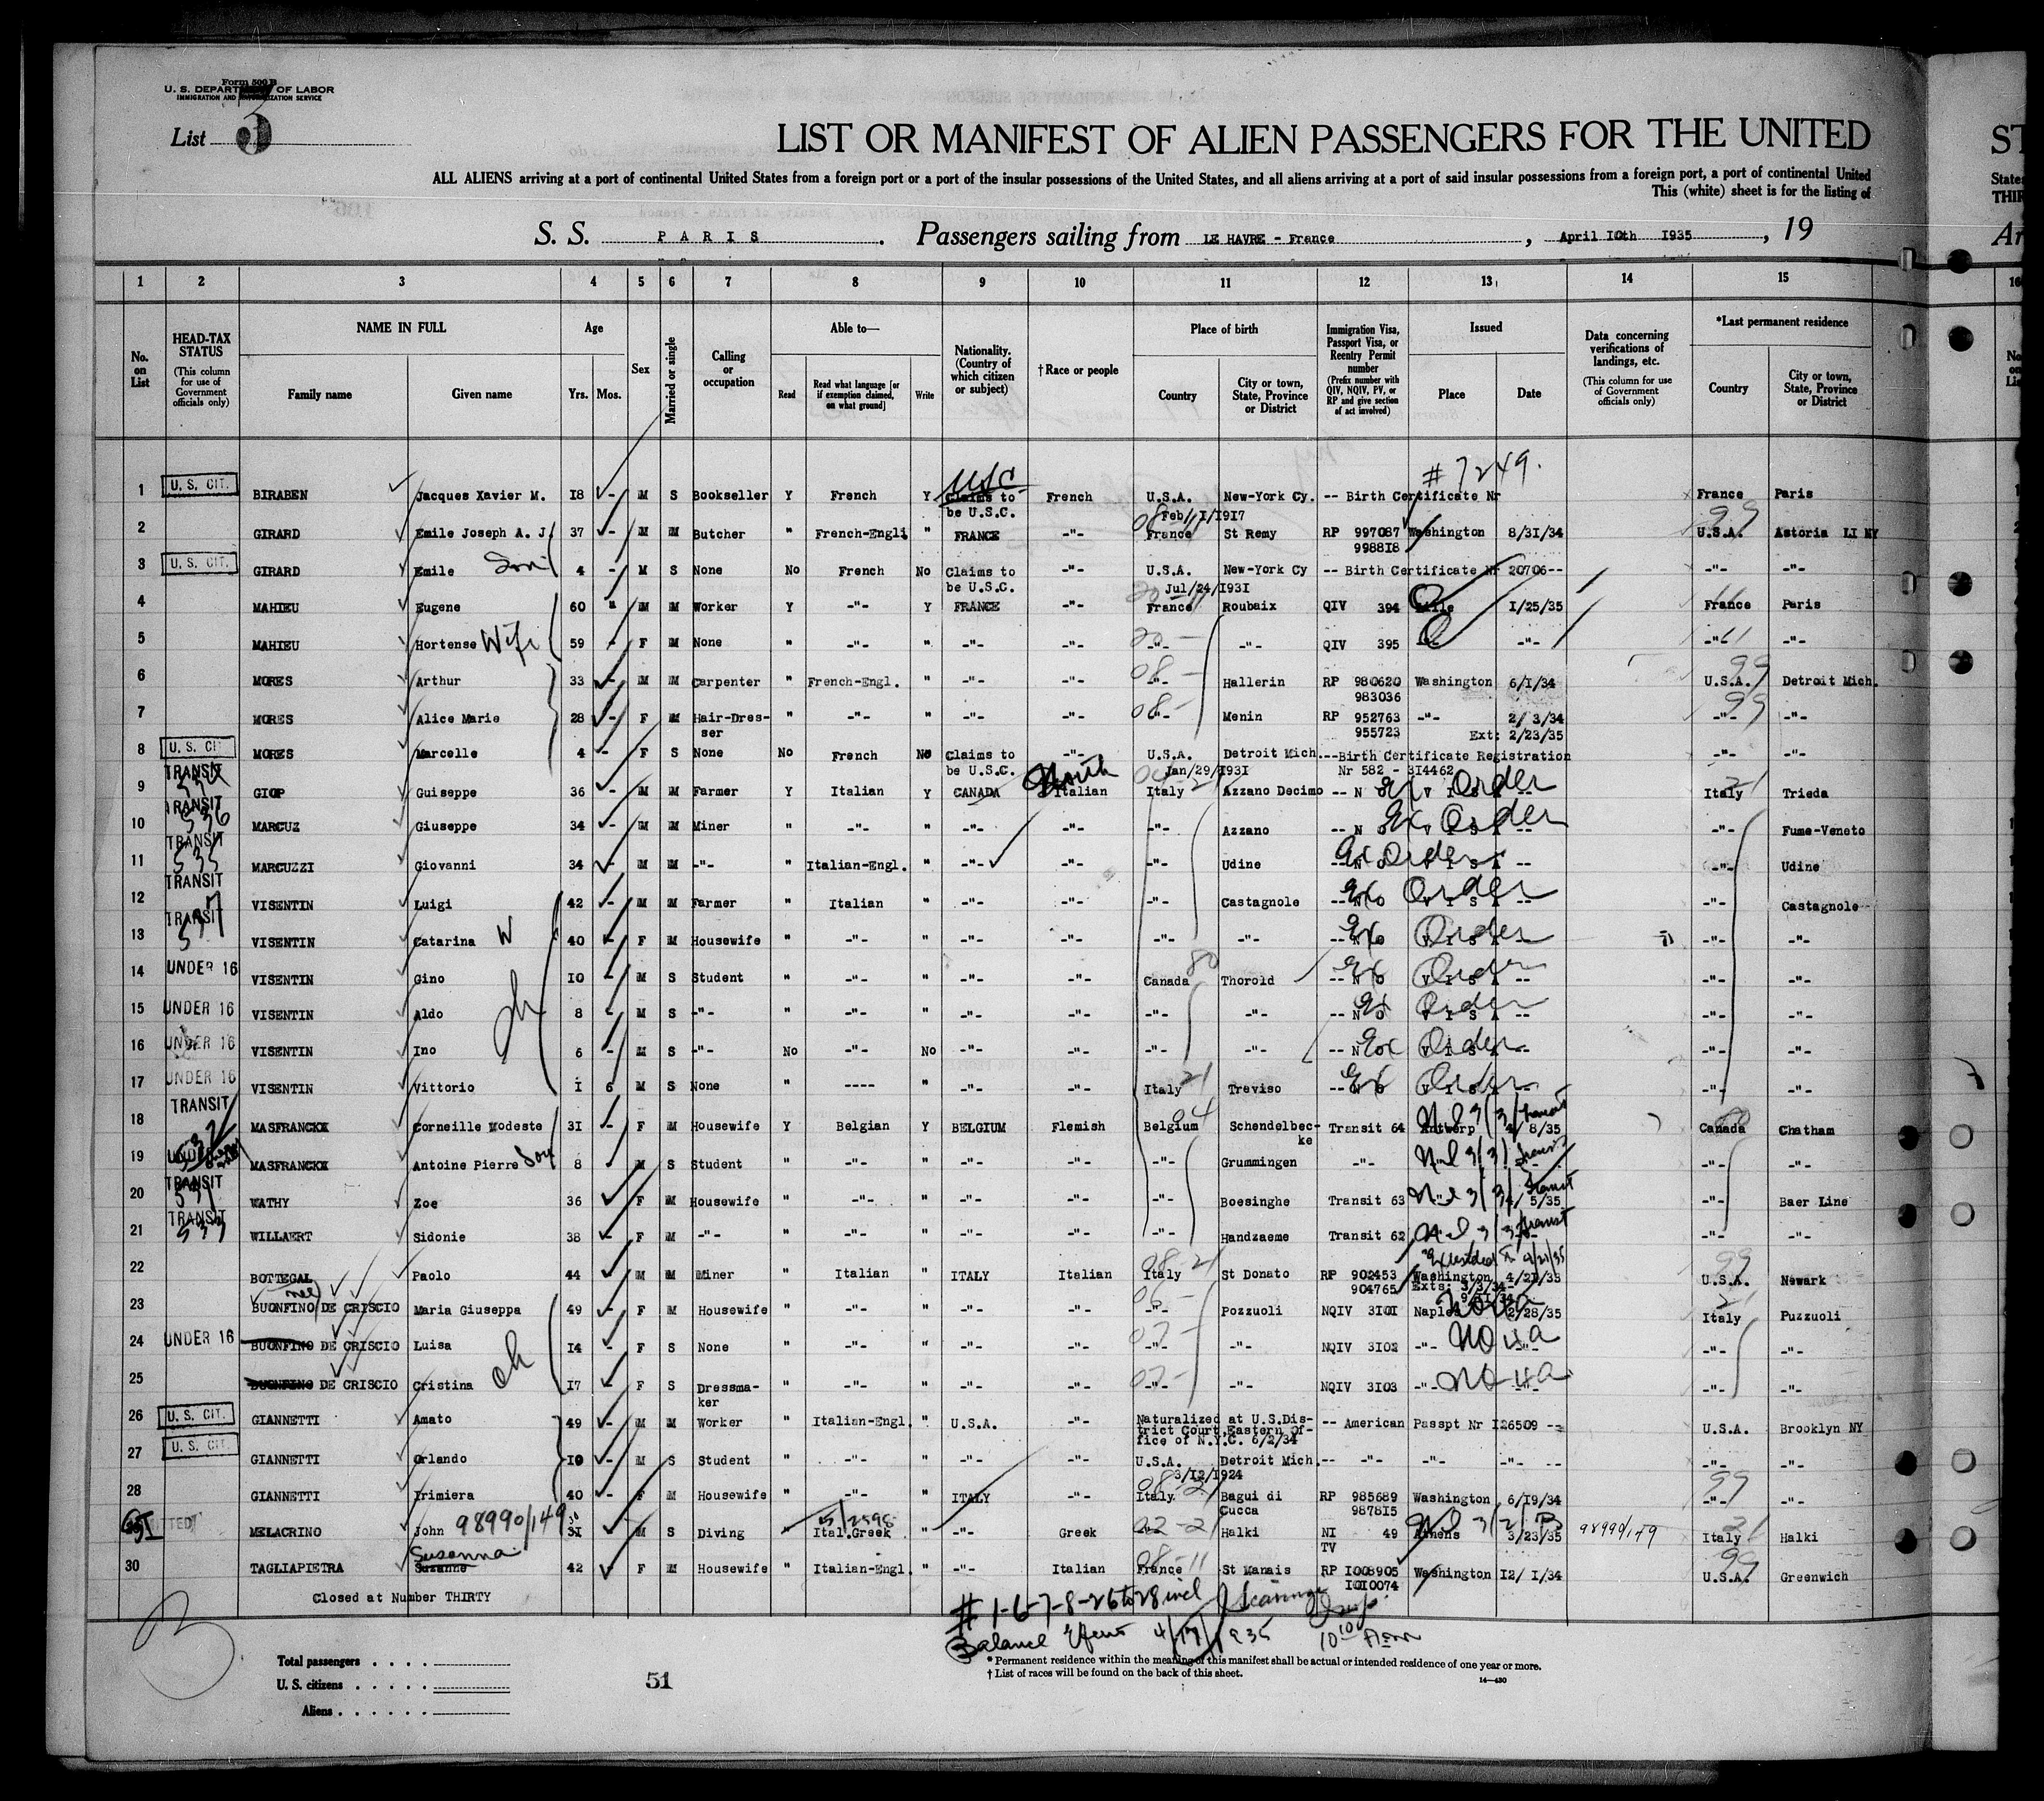 Form 500 B
U. S. DEPARTMENT OF LABOR
IMMIGRATION AND NATURALIZATION SERVICE
List 3
LIST OR MANIFEST OF ALIEN PASSENGERS FOR THE UNITED
ALL ALIENS arriving at a port of continental United States from a foreign port or a port of the insular possessions of the United States, and all aliens arriving at a port of said insular possessions from a foreign port, a port of continental United
This (white) sheet is for the listing of
S. S. PARIS. Passengers sailing from LE HAVRE - France, April 10th 1935, 19
1 2 3 4 5 6 7 8 9 10 11 12 13 14 15
No. on List
HEAD-TAX STATUS (This column for use of Government officials only)
NAME IN FULL Family name Given name
Age Yrs. Mos.
Sex
Married or single
Calling or occupation
Able to— Read Read what language [or if exemption claimed, on what ground] Write
Nationality. (Country of which citizen or subject)
† Race or people
Place of birth Country City or town, State, Province or District
Immigration Visa, Passport Visa, or Reentry Permit number (Prefix number with QIV, NQIV, PV, or RP and give section of act involved)
Issued Place Date
Data concerning verifications of landings, etc. (This column for use of Government officials only)
*Last permanent residence Country City or town, State, Province or District
# 7249.
1 U. S. CIT. BIRABEN Jacques Xavier M. 18 - M S Bookseller Y French Y USC Claims to be U.S.C. French U.S.A. Feb/1/1917 New-York Cy. -- Birth Certificate Nr France Paris
2 GIRARD Emile Joseph A. J. 37 - M M Butcher " French-Engli " FRANCE -"- France St Remy RP 997087 998818 Washington 8/31/34 U.S.A. Astoria LI NY
3 U. S. CIT. GIRARD Emile Son 4 - M S None No French No Claims to be U.S.C. -"- U.S.A. Jul/24/1931 New-York Cy -- Birth Certificate Nr 20706-- -"- -"-
4 MAHIEU Eugene 60 " M M Worker Y -"- Y FRANCE -"- France Roubaix QIV 394 Lille 1/25/35 France Paris
5 MAHIEU Hortense Wife 59 - F M None " -"- " -"- -"- -"- -"- QIV 395 -"- -"- -"- -"-
6 MORES Arthur 33 - M M Carpenter " French-Engl. " -"- -"- -"- Hallerin RP 980620 983036 Washington 6/1/34 U.S.A. Detroit Mich.
7 MORES Alice Marie 28 - F M Hair-Dresser " -"- " -"- -"- -"- Menin RP 952763 955723 -"- 2/ 3/34 Ext: 2/23/35 -"- -"-
8 U. S. CIT MORES Marcelle 4 - F S None No French No Claims to be U.S.C. -"- U.S.A. Jan/29/1931 Detroit Mich. --Birth Certificate Registration Nr 582 - 314462 -"- -"-
9 TRANSIT GIOP Guiseppe 36 - M M Farmer Y Italian Y CANADA North Italian Italy Azzano Decimo -- N O V I S A -- Ex Order Italy Trieda
10 TRANSIT 536 MARCUZ Giuseppe 34 - M M Miner " -"- " -"- -"- -"- Azzano -- N O V I S A -- Ex Order -"- Fume-Veneto
11 TRANSIT 535 MARCUZZI Giovanni 34 - M M -"- " Italian-Engl. " -"- -"- -"- Udine -- N O V I S A -- Ex Order -"- Udine
12 TRANSIT VISENTIN Luigi 42 - M M Farmer " Italian " -"- -"- -"- Castagnole -- N O V I S A -- Ex Order -"- Castagnole
13 TRANSIT 537 VISENTIN Catarina W 40 - F M Housewife " -"- " -"- -"- -"- -"- -- N O V I S A -- Ex Order -"- -"-
14 UNDER 16 VISENTIN Gino 10 - M S Student " -"- " -"- -"- Canada 80 Thorold -- N O V I S A -- Ex Order -"- -"-
15 UNDER 16 VISENTIN Aldo ch 8 - M S -"- " -"- " -"- -"- -"- -"- -- N O V I S A -- Ex Order -"- -"-
16 UNDER 16 VISENTIN Ino 6 - M S -"- No -"- No -"- -"- -"- -"- -- N O V I S A -- Ex Order -"- -"-
17 UNDER 16 VISENTIN Vittorio 1 6 M S None " ---- " -"- -"- Italy 21 Treviso -- N O V I S A -- Ex Order -"- -"-
18 TRANSIT MASFRANCKX Corneille Modeste 31 - F M Housewife Y Belgian Y BELGIUM Flemish Belgium 04 Schendelbecke Transit 64 Antwerp 4/ 8/35 Canada Chatham
19 UNDER 16 MASFRANCKX Antoine Pierre Son 8 M S Student " -"- " -"- -"- -"- Grummingen -"- -"- -"-
20 TRANSIT 531 WATHY Zoe 36 F M Housewife " -"- " -"- -"- -"- Boesinghe Transit 63 -"- 4/ 5/35 -"- Baer Line
21 TRANSIT 533 WILLAERT Sidonie 38 - F M -"- " -"- " -"- -"- -"- Handzaeme Transit 62 -"- -"-
22 BOTTEGAL Paolo 44 - M M Miner " Italian " ITALY Italian Italy St Donato RP 902453 904765 Washington 4/21/33 Exts: 3/3/34- U.S.A. Newark
23 BUONFINO nee DE CRISCIO Maria Giuseppa 49 - F M Housewife " -"- " -"- -"- -"- Pozzuoli NQIV 3101 Naples 2/28/35 Italy Puzzuoli
24 UNDER 16 BUONFINO DE CRISCIO Luisa 14 - F S None " -"- " -"- -"- -"- -"- NQIV 3102 -"- -"- -"- -"-
25 BUONFINO DE CRISCIO Cristina ch 17 - F S Dressmaker " -"- " -"- -"- -"- -"- NQIV 3103 -"- -"- -"-
26 U. S. CIT. GIANNETTI Amato 49 - M M Worker " Italian-Engl. " U.S.A. -"- Naturalized at U.S.District Court,Eastern Office of N.Y.C. 6/2/34 -- American Passpt Nr 126509 -- U.S.A. Brooklyn NY
27 U. S. CIT GIANNETTI Orlando 10 - M S Student " -"- " -"- U.S.A. 3/12/1924 Detroit Mich. -- -"- -"- -"- -- -"- -"-
28 GIANNETTI Irimiera 40 - F M Housewife " -"- " ITALY -"- Italy Bagui di Cucca RP 985689 987815 Washington 6/19/34 -"- -"-
MELACRINO John 98990/149 31 M S Diving " Ital.Greek " -"- Greek -"- Halki NI 49 TV Athens 3/23/35 98990/149 Italy Halki
30 TAGLIAPIETRA Susanna Suzanne 42 F M Housewife " Italian-Engl. " -"- Italian France St Manais RP 1008905 1010074 Washington 12/ 1/34 U.S.A. Greenwich
Closed at Number THIRTY
# 1-6-7-8-26 to 28 incl
Balance 4/17/1935
Total passengers . . . .
U. S. citizens . . . . .
Aliens . . . . . .
51
* Permanent residence within the meaning of this manifest shall be actual or intended residence of one year or more.
† List of races will be found on the back of this sheet.
14—430